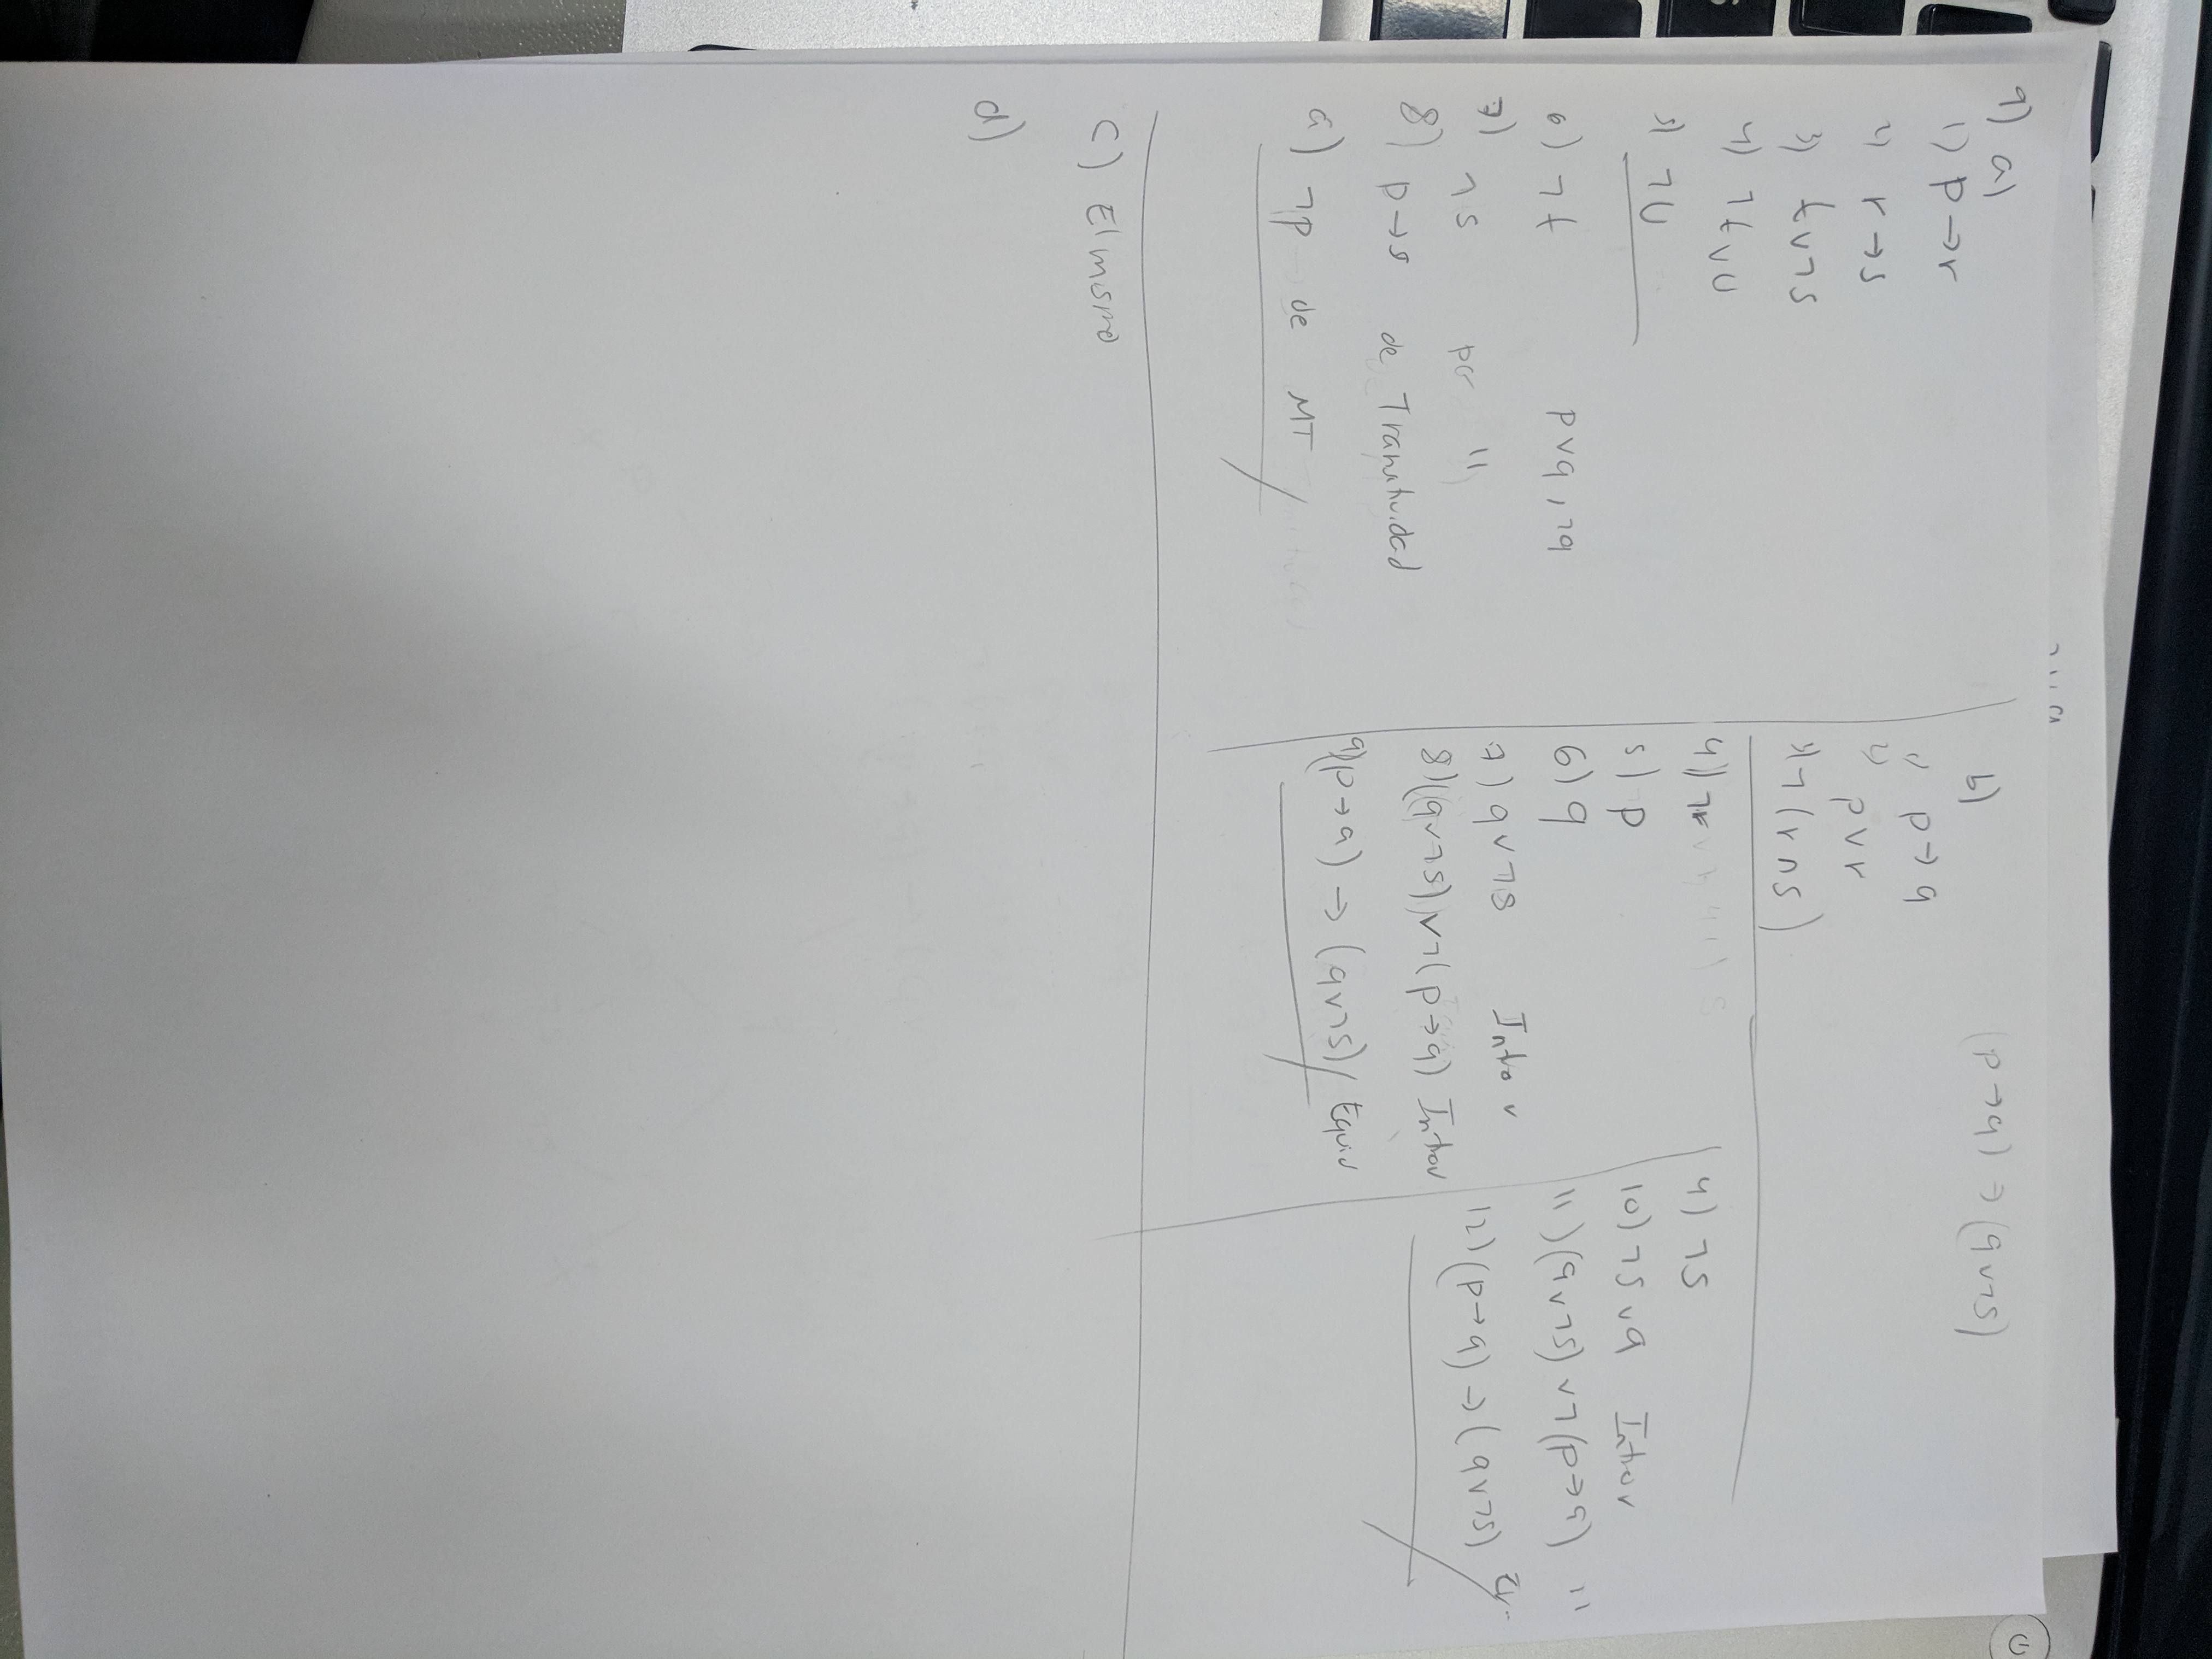 9) a)
1) p→r
2) r→s
3) t∨¬s
4) ¬t∨U
5) ¬U
6) ¬t p∨q, ¬q
7) ¬s por "
8) p→s de Transitividad
a) ¬p de MT
b) (p→q) → (q∨¬s)
1) p→q
2) p∨r
3) ¬(r∧s)
4) ¬r
5) p
6) q
7) q∨¬s Intro ∨
8) (q∨¬s)∨¬(p→q) Intro∨
9) (p→q) → (q∨¬s) Equiv
4) ¬s
10) ¬s∨q Intro∨
11) (q∨¬s)∨¬(p→q) "
12) (p→q) → (q∨¬s)
c) El mismo
d)